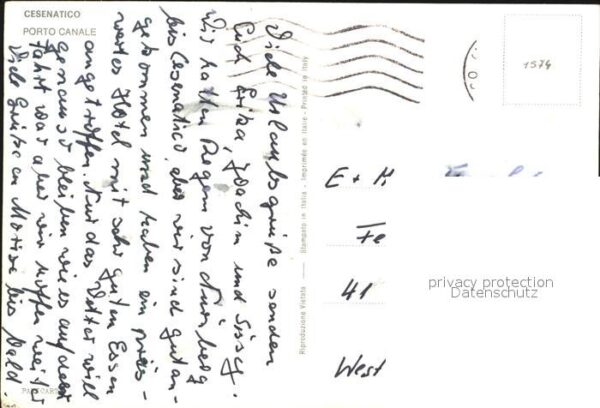 CESENATICO
PORTO CANALE
Viele Urlaubsgrüße senden
Euch Erika, Joachim und Sissy.
Wir hatten Regen von Nürnberg
bis Cesenatico, aber wir sind gut an-
gekommen und haben ein preis-
wertes Hotel mit sehr guten Essen
angetroffen. Nur das Wetter will
genau so bleiben wie es auf der
Fahrt war aber wir hoffen weiter
Viele Grüße an Marisa bis bald.
Riproduzione Vietata Stampato in Italia - Imprimée en Italie - Printed in Italy
1574
E + H
41
West
privacy protection
Datenschutz